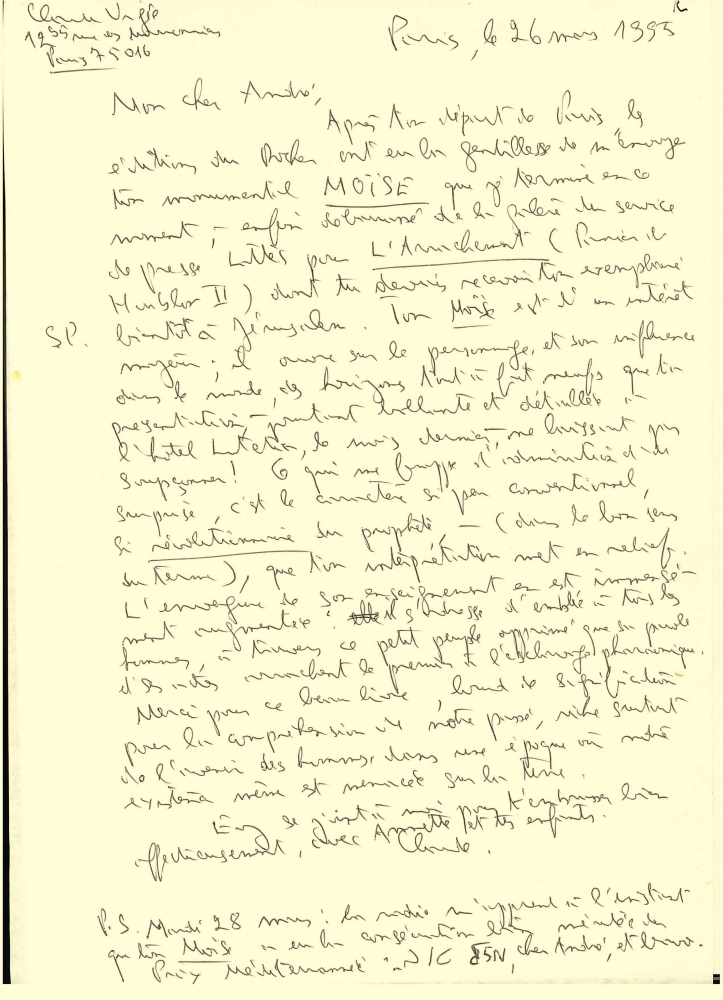 Claude Vigée
12 rue des Marronniers
Paris 75016
Paris, le 26 mars 1995
Mon cher André,
Après ton départ de Paris les
éditions du Rocher ont eu la gentillesse de m'envoyer
ton monumental MOÏSE que je termine en ce
moment, – enfin débarrassé de la galère du service
de presse pour L'Arrachement (Panier de
Houblon II) dont tu devrais recevoir ton exemplaire
bientôt à Jérusalem. Ton Moïse est d'un intérêt
SP.
majeur; il ouvre sur le personnage, et son influence
dans le monde, des horizons tout à fait neufs que ta
présentation, – pourtant brillante et détaillée à
l'hôtel Lutetia, le mois dernier, – ne laissait pas
soupçonner! Ce qui me frappe d'admiration et de
surprise, c'est le caractère si peu conventionnel,
si révolutionnaire du prophète, – (dans le bon sens
du terme), que ton interprétation met en relief.
L'envergure de son enseignement en est immensé-
ment augmentée: il s'adresse d'emblée à tous les
hommes, à travers ce petit peuple opprimé que sa parole
et ses actes arrachent le premier à l'esclavage pharaonique.
Merci pour ce beau livre, lourd de signification
pour la compréhension de notre passé, voire surtout
de l'avenir des hommes, dans une époque où notre
existence même est menacée sur la terre.
Evy se joint à moi pour t'embrasser bien
affectueusement, avec Annette et tes enfants.
Claude.
P.S. Mardi 28 mars: la radio m'apprend à l'instant
que ton Moïse a eu la consécration bien méritée du
Prix Méditerranée. cher André, et bravo.